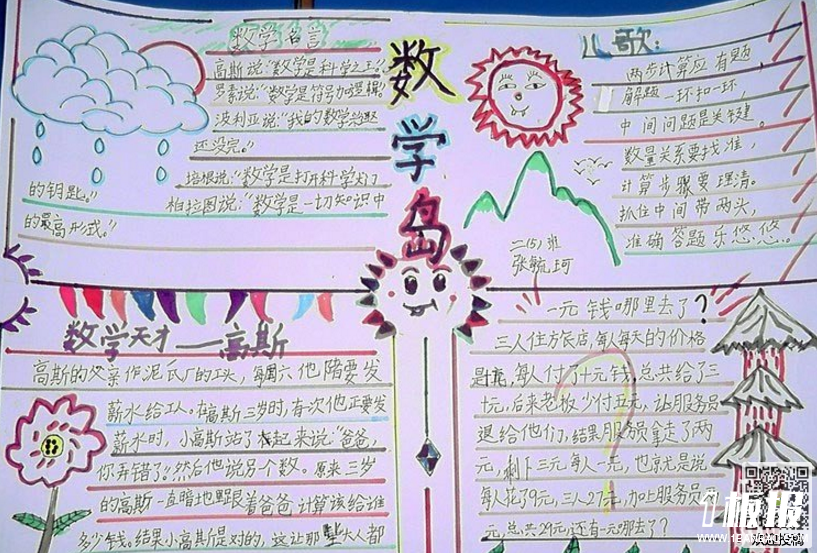 数学名言
高斯说:“数学是科学之王”
罗素说:“数学是符号加逻辑”
波利亚说:“我的数学
还没完。”
培根说:“数学是打开科学大门
的钥匙。”
柏拉图说:“数学是一切知识中
的最高形式。”
数学岛
儿歌:
两步计算应有题
解题一环扣一环,
中间问题是关键。
数量关系要找准,
计算步骤要理清。
抓住中间带两头,
准确答题乐悠悠。
二(5)班
张毓珂
数学天才——高斯
高斯的父亲作泥瓦厂的工头,每周六他隋要发
薪水给工人。在高斯三岁时,有次他正要发
薪水时,小高斯站了起来说:“爸爸,
你弄错了。”然后他说另个数。原来三岁
的高斯一直暗地里跟着爸爸计算该给谁
多少钱。结果小高斯是对的,这让那大人都
一元钱哪里去了?
三人住方旅店,每人每天的价格
是十元,每人付了十元钱,总共给了三
十元,后来老板少付五元,让服务员
退给他们,结果服务员拿走了两
元,剩下三元每人一元,也京尤是说
每人花了9元,三人27元,加上服务员
元,总共29元,还有一元哪去了?
1板报